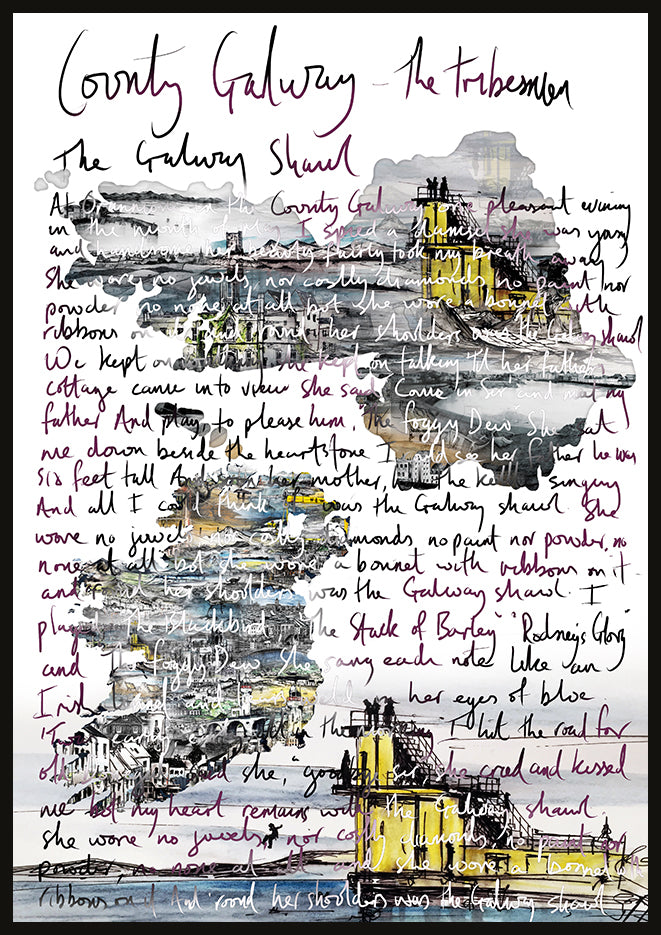 County Galway - The Tribesmen
The Galway Shawl
At Oranmore in the County Galway one pleasant evening
in the month of May I spied a damsel she was young
and handsome her beauty fairly took my breath away
She wore no jewels, nor costly diamonds no paint nor
powder no none at all but she wore a bonnet with
ribbons on it and round her shoulders was the Galway shawl
We kept on she kept on talking til her father's
cottage came into view She said Come in Sir and my
father And play, to please him, the foggy Dew She sat
me down beside the hearthstone I could see her father he was
six feet tall And her mother, the singing
And all I could think was the Galway shawl She
wore no jewels nor costly diamonds no paint nor powder, no
none at all but she wore a bonnet with ribbons on it
and round her shoulders was the Galway shawl. I
played The Blackbird The Stack of Barley" "Rodney's Glory"
and The foggy Dew She sang each note like an
Irish and in her eyes of blue
'Twas early in the morning I hit the road for
old said she, "goodbye sir, she cried and kissed
me but my heart remains with the Galway shawl
she wore no jewels, nor costly diamonds, no paint or
powder, no none at all and she wore a bonnet with
ribbons on it And 'round her shoulders was the Galway shawl